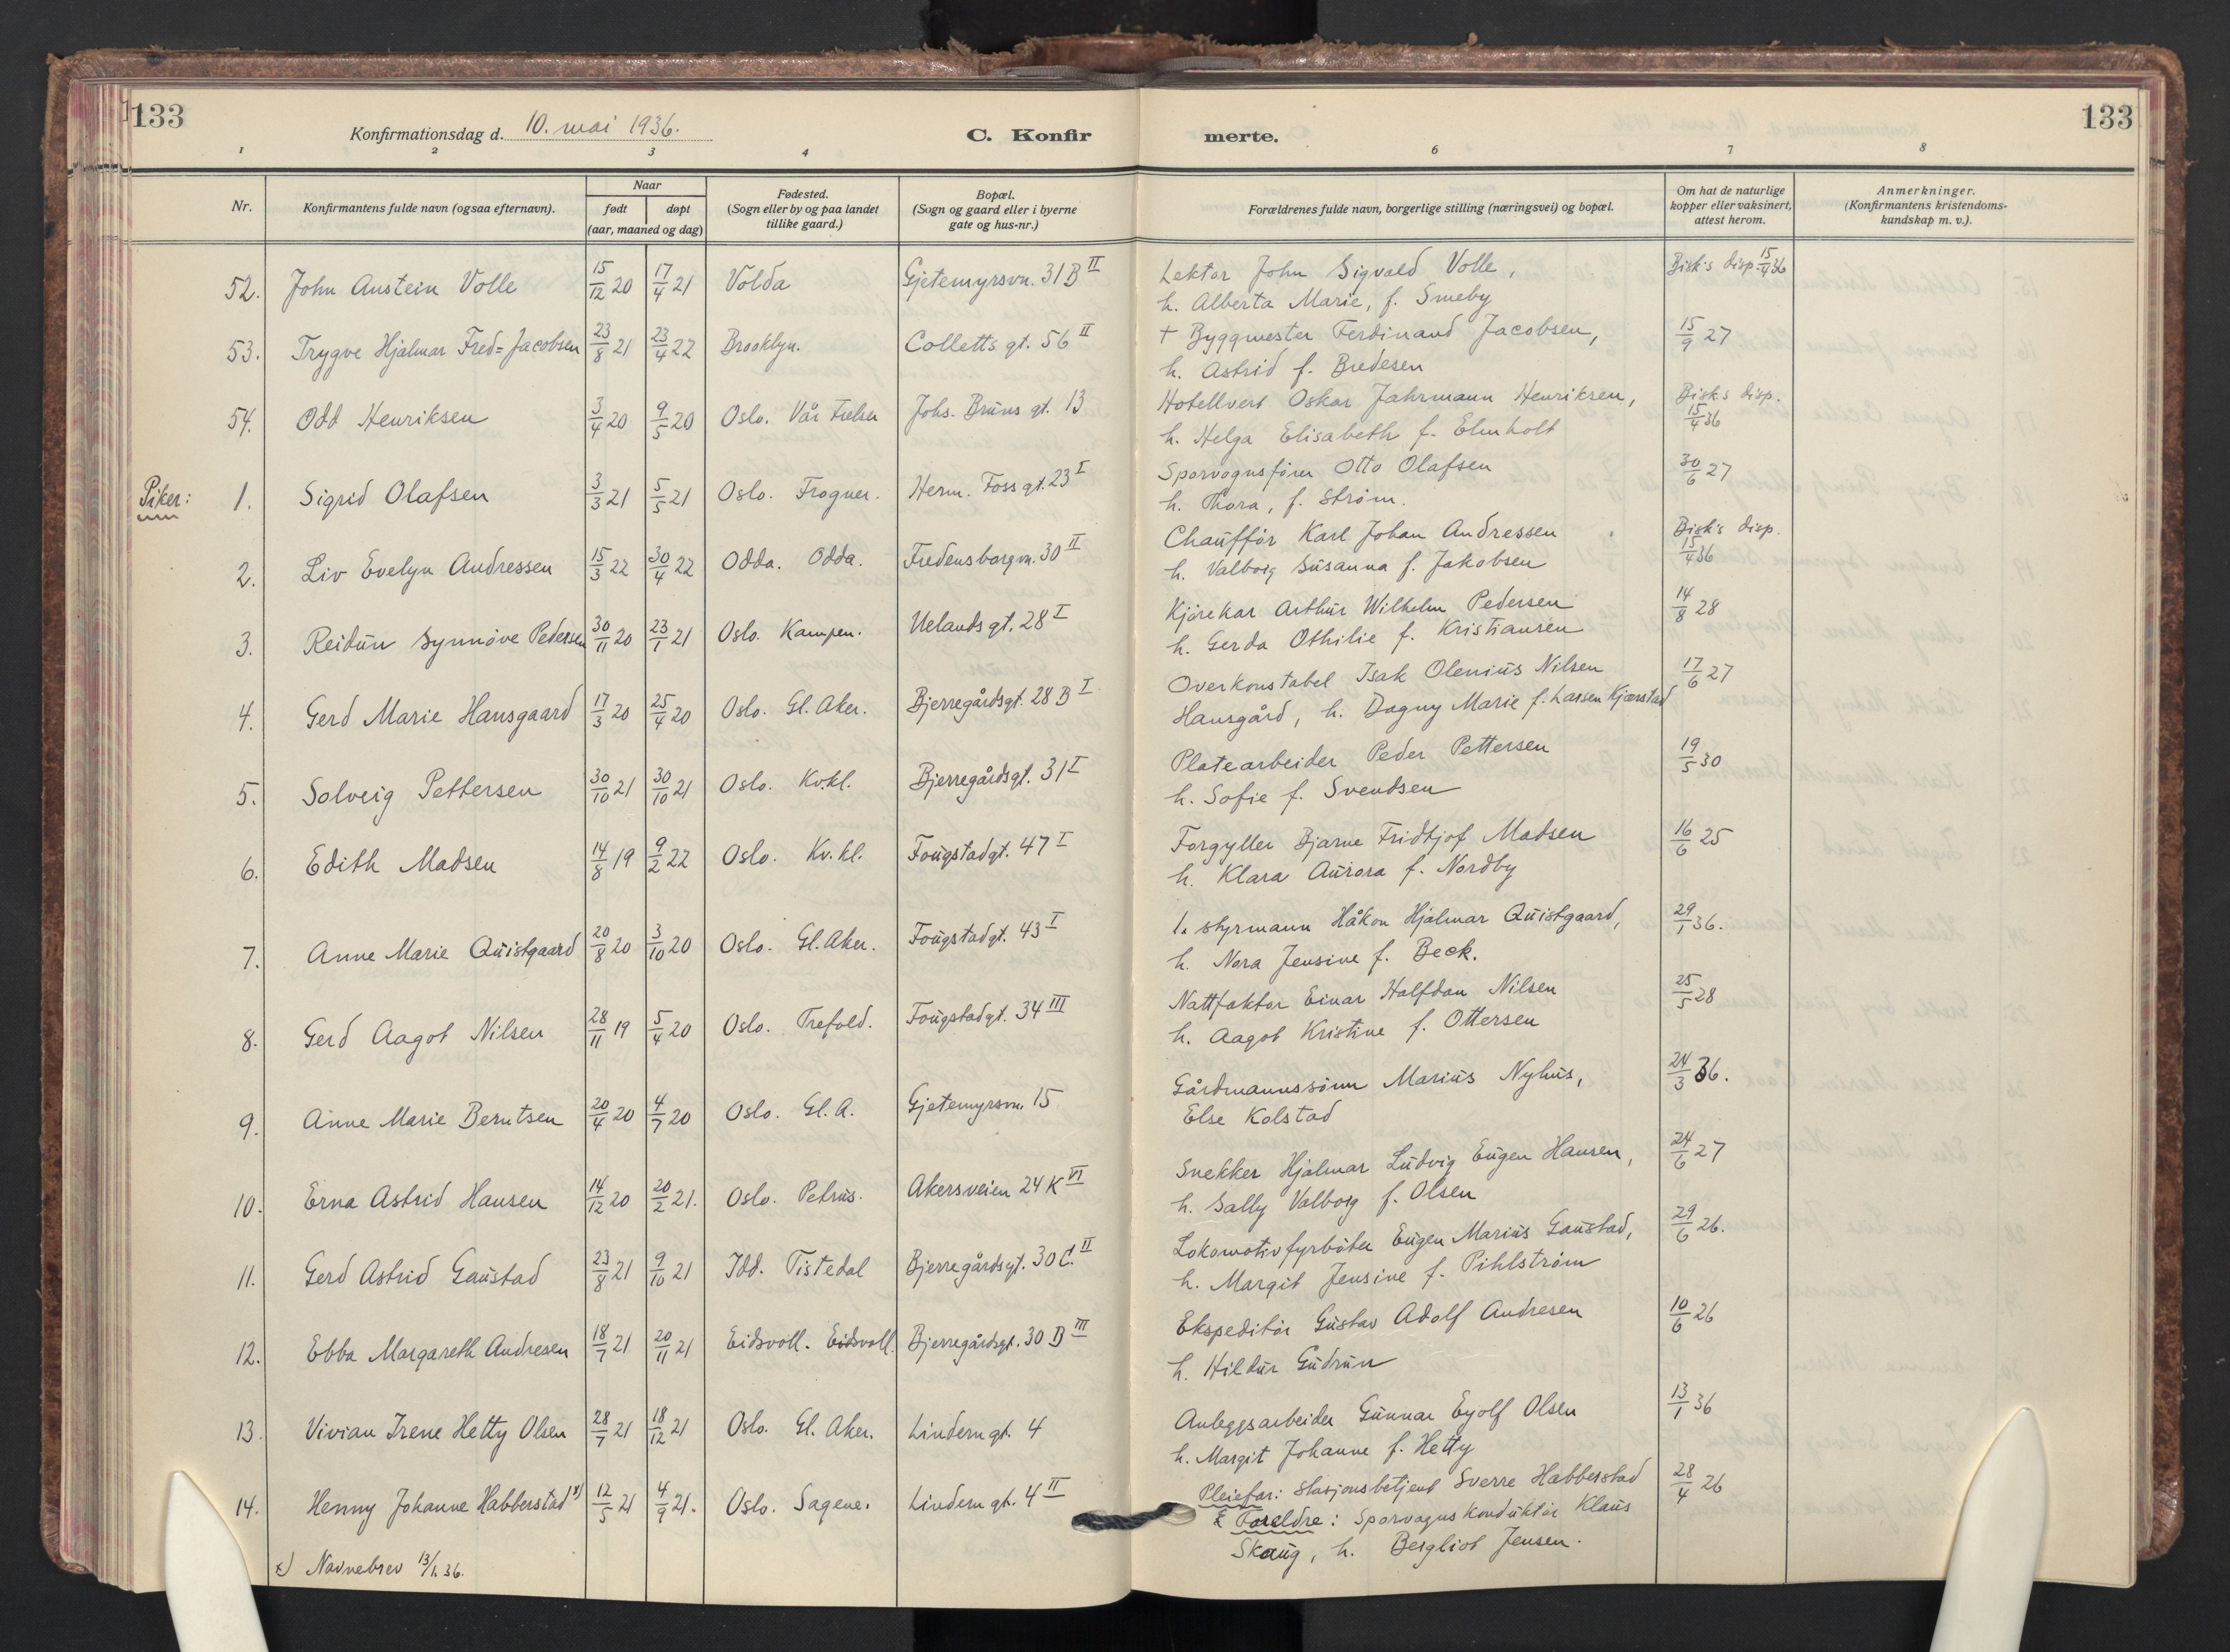 133
Konfirmationsdag d. 10. mai 1936.
C. Konfir merte.
133
1 2 3 4 6 7 8
Nr.
Konfirmantens fulde navn (ogsaa efternavn).
Naar
født døpt
(aar, maaned og dag)
Fødested.
(Sogn eller by og paa landet
tillike gaard.)
Bopæl.
(Sogn og gaard eller i byerne
gate og hus-nr.)
Forældrenes fulde navn, borgerlige stilling (næringsvei) og bopæl.
Om hat de naturlige
kopper eller vaksinert,
attest herom.
Anmerkninger.
(Konfirmantens kristendoms-
kundskap m. v.).
52. John Austein Volle 15/12 20 17/4 21 Volda Gjetemyrsvn. 31 B II Lektor John Sigvald Volle, Bisk's disp. 15/4 36
h. Alberta Marie, f. Smeby
53. Trygve Hjalmar Fred= Jacobsen 23/8 21 23/4 22 Brooklyn. Colletts gt. 56 II + Byggmester Ferdinand Jacobsen, 15/9 27
h. Astrid f. Bredesen
54. Odd Henriksen 3/4 20 9/5 20 Oslo. Vår Frelser Johs. Bruns gt. 13 Hotellvert Oskar Jahrmann Henriksen, Bisk's disp. 15/4 36
h. Helga Elisabeth f. Elmholt
Piker: 1. Sigrid Olafsen 3/3 21 5/5 21 Oslo. Frogner. Herm. Foss gt. 23 I Sporvognsfører Otto Olafsen 30/6 27
h. Thora, f. Strøm.
2. Liv Evelyn Andressen 15/3 22 30/4 22 Odda. Odda. Fredensborgvn. 30 II Chauffør Karl Johan Andressen Bisk's disp. 15/4 36
h. Valborg Susanna f. Jakobsen
3. Reidun Synnøve Pedersen 30/11 20 23/1 21 Oslo. Kampen. Uelands gt. 28 I Kjørekar Arthur Wilhelm Pedersen 14/8 28
h. Gerda Othilie f. Kristiansen
4. Gerd Marie Hansgaard 17/3 20 25/4 20 Oslo. Gl. Aker. Bjerregårdsgt. 28 B I Overkonstabel Isak Olenius Nilsen 17/6 27
Hansgård, h. Dagny Marie f. Larsen Kjærstad
5. Solveig Pettersen 30/10 21 30/10 21 Oslo. Kv.kl. Bjerregårdsgt. 31 I Platearbeider Peder Pettersen 19/5 30
h. Sofie f. Svendsen
6. Edith Madsen 14/8 19 9/2 22 Oslo. Kv. kl. Fougstadgt. 47 I Forgyller Bjarne Fridtjof Madsen 16/6 25
h. Klara Aurora f. Nordby
7. Anne Marie Quistgaard 20/8 20 3/10 20 Oslo. Gl. Aker. Fougstadgt. 43 I 1. styrmann Håkon Hjalmar Quistgaard, 29/1 36.
h. Nora Jensine f. Beck.
8. Gerd Aagot Nilsen 28/11 19 5/4 20 Oslo. Trefold. Fougstadgt. 34 III Nattfaktor Einar Halfdan Nilsen 25/5 28
h. Aagot Kristine f. Ottersen
9. Anne Marie Berntsen 20/4 20 4/7 20 Oslo. Gl. A. Gjetemyrsvn. 15 Gårdmannssønn Marius Nyhus, 24/3 36.
Else Kolstad
10. Erna Astrid Hansen 14/12 20 20/2 21. Oslo. Petrus. Akersveien 24 K VI Snekker Hjalmar Ludvig Eugen Hansen, 24/6 27
h. Sally Valborg f. Olsen
11. Gerd Astrid Gaustad 23/8 21 9/10 21 Idd. Tistedal Bjerregårdsgt. 30 C. II Lokomotivfyrbøter Eugen Marius Gaustad, 29/6 26.
h. Margit Jensine f. Pihlstrøm
12. Ebba Margareth Andresen 18/7 21 20/11 21 Eidsvoll. Eidsvoll. Bjerregårdsgt. 30 B III Ekspeditør Gustav Adolf Andresen 10/6 26
h. Hildur Gudrun
13. Vivian Irene Hetty Olsen 28/7 21 18/12 21 Oslo. Gl. Aker. Lindern gt. 4 Anleggsarbeider Gunnar Eyolf Olsen 13/1 36
h. Margit Johanne f. Hetty
14. Henny Johanne Habberstad x) 12/5 21 4/9 21. Oslo. Sagene. Lindern gt. 4 II Pleiefar: Stasjonsbetjent Sverre Habberstad 28/4 26
Foreldre: Sporvogns konduktør Klaus
Skaug, h. Bergliot Jensen.
x) Navnebrev 13/1.36.